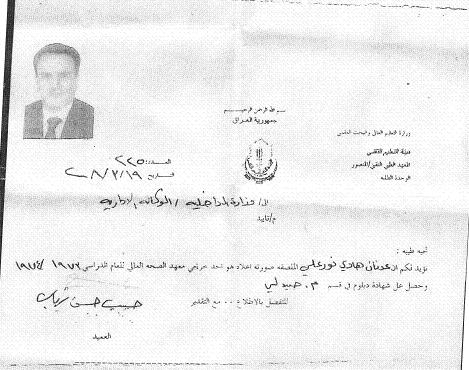 بسم الله الرحمن الرحيم
جمهورية العراق
وزارة التعليم العالي والبحث العلمي
هيئة التعليم التقني
المعهد الطبي التقني/المنصور
الوحدة
العدد: ٢٢٥
تاريخ ٢٠٠٨/٣/١٩
الى/ وزارة الداخلية / الوكالة الادارية
م/تأييد
تحية طيبة :
نؤيد لكم ان عدنان هادي نور علي الملصقه صورته اعلاه هو احد خريجي معهد الصحه العالي للعام الدراسي ١٩٧٣ ١٩٧٤
وحصل على شهادة دبلوم في قسم م. صيدلي
للتفضل بالاطلاع ... مع التقدير
حسن
العميد